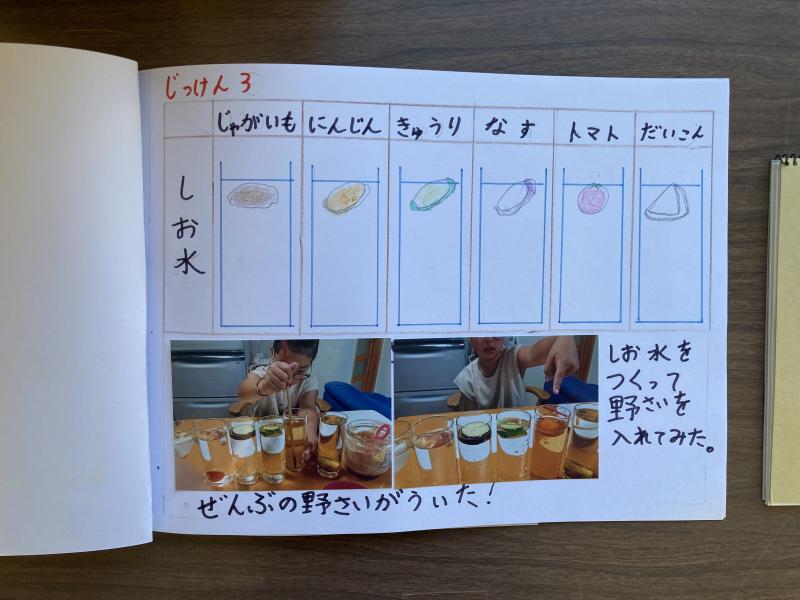 じっけん3
じゃがいも にんじん きゅうり なす トマト だいこん
しお水
しお水を
つくって
野さいを
入れてみた。
ぜんぶの野さいがういた!